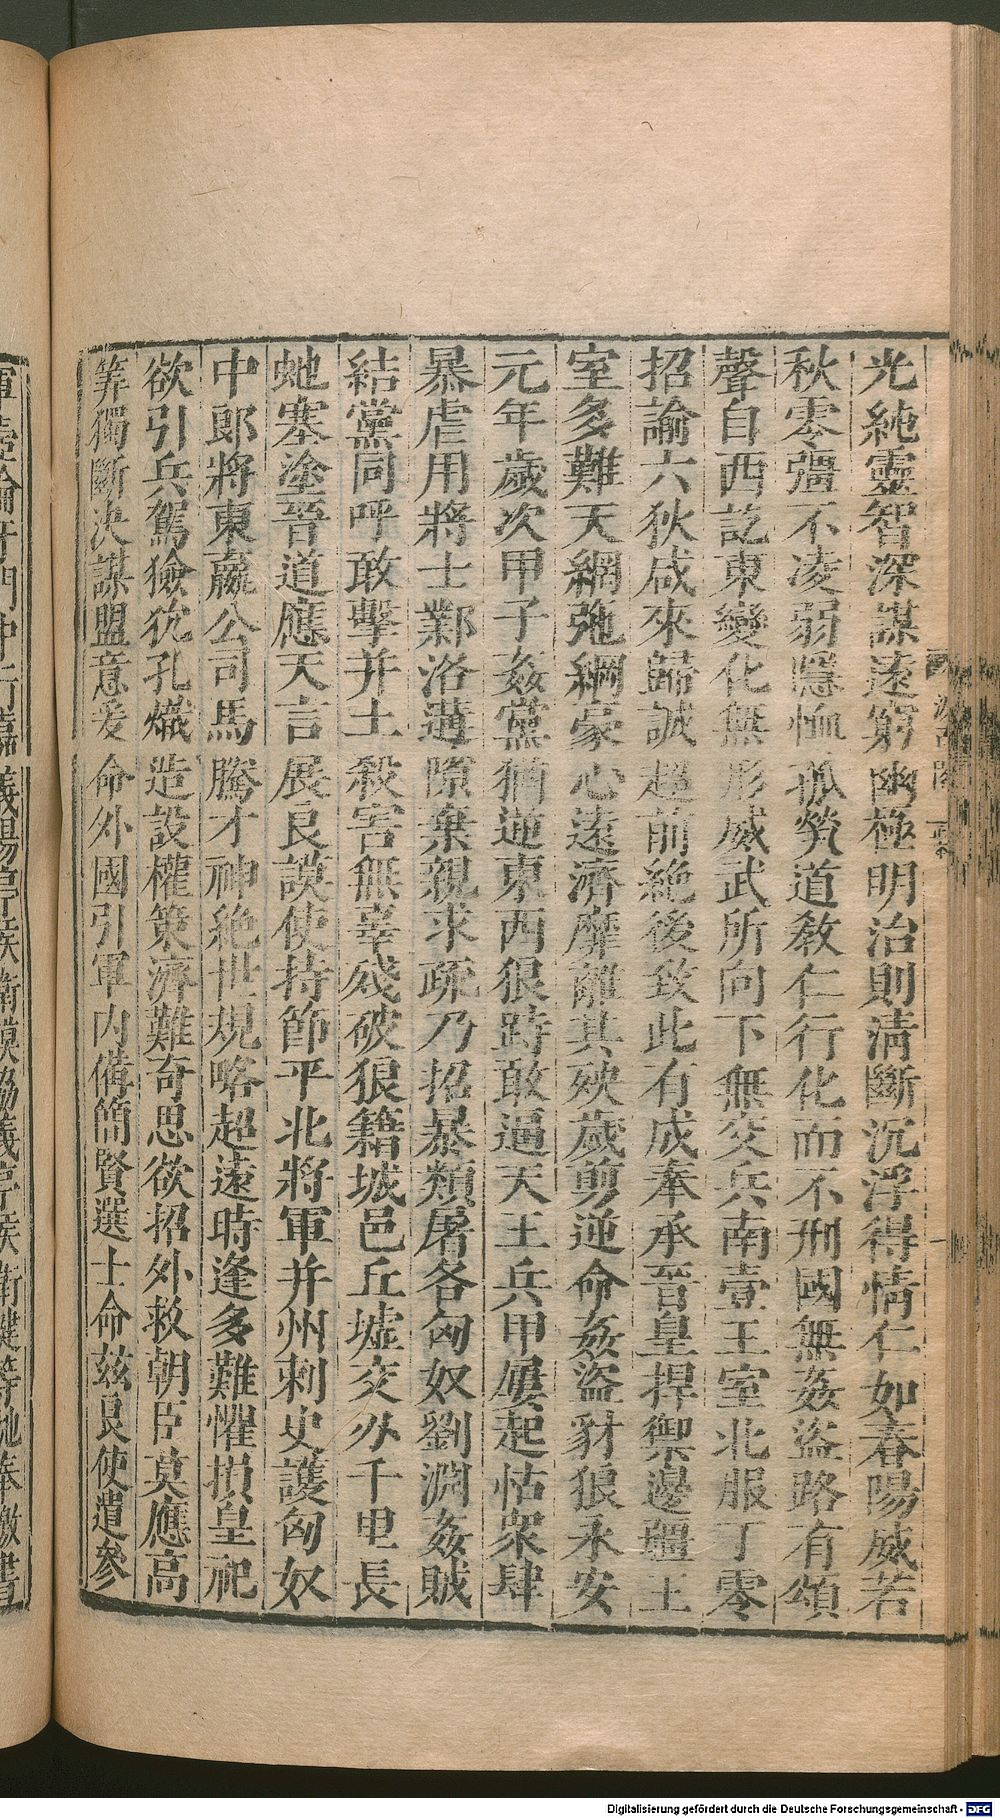 光純靈智深謀遠窮幽極明治則清斷沉浮得情仁如春陽威若
秋零彊不凌弱隱恤孤煢道敎仁行化而不刑國無姦盜路有頌
聲自西訖東變化無形威武所向下無交兵南壹王室北服丁零
招諭六狄咸來歸誠超前絶後致此有成奉承晉皇捍禦邊疆王
室多難天網弛綱豪心遠濟靡離其殃歲剪逆命姦盜豺狼永安
元年歲次甲子姦黨猶逆東西狠跱敢逼天王兵甲屢起怙衆肆
暴虐用將士鄴洛遘隙棄親求疏乃招暴類屠各匈奴劉淵姦賊
結黨同呼敢擊并土殺害無辜殘破狼籍城邑丘墟交刅千里長
虵塞塗晉道應天言展良謨使持節平北將軍并州刺史護匈奴
中郎將東嬴公司馬騰才神絶世規略超遠時逢多難懼損皇祀
欲引兵駕獫狁孔熾造設權策濟難奇思欲招外救朝臣莫應高
筭獨斷決謀盟意爰命外國引軍内備簡賢選士命茲良使遣參
軍壺倫牙門中行嘉義陽亭侯衛謨協義亭侯衛鞬等馳奉檄書
Digitalisierung gefördert durch die Deutsche Forschungsgemeinschaft - DFG